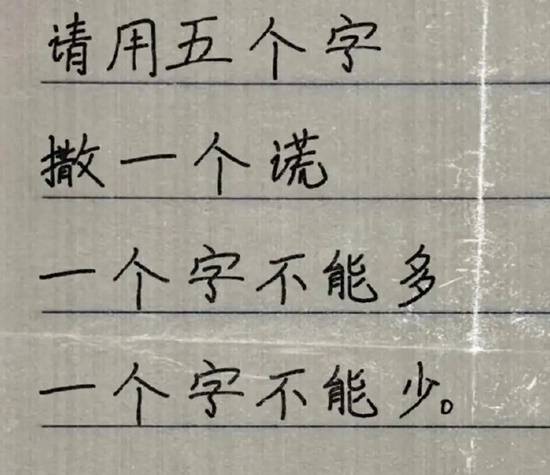 请用五个字
撒一个谎
一个字不能多
一个字不能少。